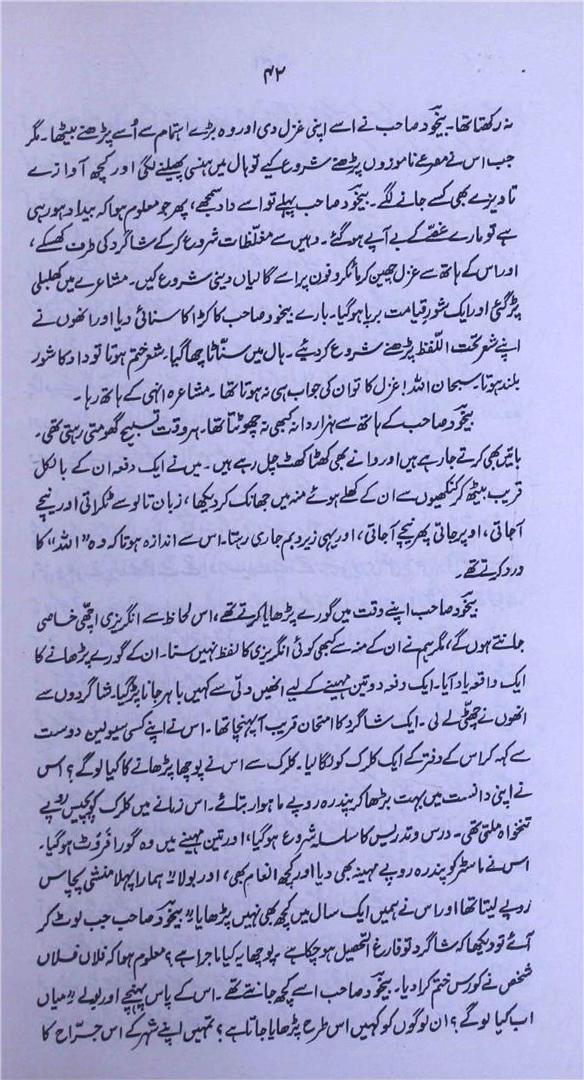 ۴۲
نہ رکھتا تھا۔ بیخود صاحب نے اسے اپنی غزل دی اور وہ بڑے اہتمام سے اُسے پڑھنے بیٹھا۔ مگر
جب اس نے مصرعے ناموزوں پڑھنے شروع کیے تو ہال میں ہنسی پھیلنے لگی اور کچھ آوازے
تاویزے بھی کسے جانے لگے۔ بیخود صاحب پہلے تو اسے داد سمجھے، پھر جو معلوم ہوا کہ بیداد ہو رہی
ہے تو مارے غصّے کے بے آپے ہو گئے۔ وہیں سے مغلّظات شروع کر کے شاگرد کی طرف کھسکے،
اور اس کے ہاتھ سے غزل چھین کر مائکروفون پر اسے گالیاں دینی شروع کیں۔ مشاعرے میں کھلبلی
پڑ گئی اور ایک شورِ قیامت برپا ہو گیا۔ بارے بیخود صاحب کا کڑاکا سنائی دیا اور انھوں نے
اپنے شعر تحت اللّفظ پڑھنے شروع کر دیئے۔ ہال میں سنّاٹا چھا گیا۔ شعر ختم ہوتا تو داد کا شور
بلند ہوتا۔ سبحان اللہ! غزل کا تو ان کی جواب ہی نہ ہوتا تھا۔ مشاعرہ انہی کے ہاتھ رہا۔
بیخود صاحب کے ہاتھ سے ہزار دانہ کبھی نہ چھوٹتا تھا۔ ہر وقت تسبیح گھومتی رہتی تھی۔
باتیں بھی کرتے جا رہے ہیں اور دانے بھی کھٹا کھٹ چل رہے ہیں۔ میں نے ایک دفعہ ان کے بالکل
قریب بیٹھ کر کنکھیوں سے ان کے کھلے ہوئے منہ میں جھانک کر دیکھا، زبان تالو سے ٹکراتی اور نیچے
آ جاتی، اوپر جاتی پھر نیچے آ جاتی، اور یہی زیر و بم جاری رہتا۔ اس سے اندازہ ہوتا کہ وہ "اللہ" کا
ورد کرتے تھے۔
بیخود صاحب اپنے وقت میں گورے پڑھایا کرتے تھے، اس لحاظ سے انگریزی اچھّی خاصی
جانتے ہوں گے، مگر ہم نے ان کے منہ سے کبھی کوئی انگریزی کا لفظ نہیں سنا۔ ان کے گورے پڑھانے کا
ایک واقعہ یاد آیا۔ ایک دفعہ دو تین مہینے کے لیے انھیں دلّی سے کہیں باہر جانا پڑ گیا۔ شاگردوں سے
انھوں نے چھٹّی لے لی۔ ایک شاگرد کا امتحان قریب آ پہنچا تھا۔ اس نے اپنے کسی سیولین دوست
سے کہہ کر اس کے دفتر کے ایک کلرک کو لگا لیا۔ کلرک سے اس نے پوچھا پڑھانے کا کیا لو گے؟ اس
نے اپنی دانست میں بہت بڑھا کر پندرہ روپے ماہوار بتائے۔ اس زمانے میں کلرک کو پچیس روپے
تنخواہ ملتی تھی۔ درس و تدریس کا سلسلہ شروع ہو گیا، اور تین مہینے میں وہ گورا فَروٹ ہو گیا۔
اس نے ماسٹر کو پندرہ روپے مہینہ بھی دیا اور کچھ انعام بھی، اور بولا "ہمارا پہلا منشی پچاس
روپے لیتا تھا اور اس نے ہمیں ایک سال میں کچھ بھی نہیں پڑھایا۔" بیخود صاحب جب لوٹ کر
آئے تو دیکھا کہ شاگرد تو فارغ التحصیل ہو چکا ہے۔ پوچھا۔ یہ کیا ماجرا ہے؟ معلوم ہوا کہ فلاں فلاں
شخص نے کورس ختم کرا دیا۔ بیخود صاحب اسے کچھ جانتے تھے۔ اس کے پاس پہنچے اور بولے "میاں
اب کیا لو گے؟ ان لوگوں کو کہیں اس طرح پڑھایا جاتا ہے؟ تمہیں اپنے شہر کے اس جرّاح کا